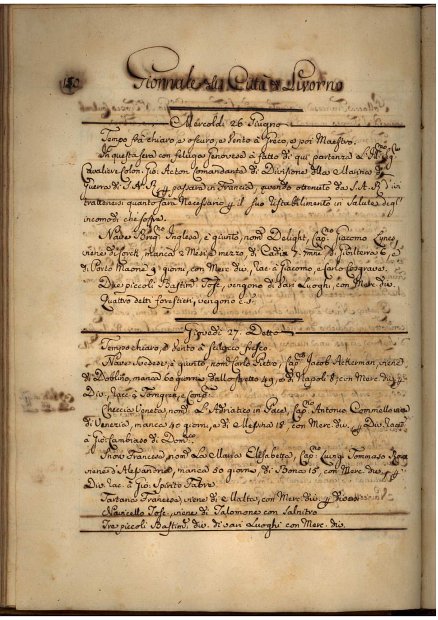 150
Giornale della Città di Livorno
Mercoldì 26 Giugno
Tempo frà chiaro e oscuro, e Vento à Greco, e poi Maestro.
In questa sera con feluga Genovese à fatto di quì partenza
Cavaliere Colon. Gio: Acton Comandante di Divisione della Marina di
Guerra di S. A. R. passare in Francia, avendo ottenuto da S. A. R. di
trattenersi quanto sarà Necessario il suo ristabilimento in Salute degl'
incomodi che soffre.
Nave Inglese, è giunto, nom. Delight, Cap. Giacomo
viene di manca 2 Mesi e mezzo, di Cadis 7, Gibilterra 6, e
di Porto Maone 9 giorni, con Merc. div. Rac. à Giacomo, e Carlo Cosgrave.
Due piccoli Bastim. Tosc. vengono di vari Luoghi, con Merc. div.
Quattro detti forestieri, vengono c. s.
Giovedì 27. Detto
Tempo chiaro, e Vento à fresco
Nave Svedese, è giunto, nom. Carlo Pietro, Cap. Jacob Ackerman, viene
di Doblino, manca 60 giorni, dallo Stretto 49, e di Napoli 8, con Merc. div.
Div. Rac. à Songren, e Comp.
Checcia Veneta, nom. L'Adriatico in Pace, Cap. Antonio
di Venezia, manca 40 giorni, e di Messina 18 con Merc. div. Div. Rac.
à Gio: Cambiaso di Dom.
Snow Francese nom. La Maria Elisabetta, Cap. Luigi Tommaso
viene d'Alessandria, manca 50 giorni, di Bona 15 con Merc. div.
Div. Rac. à Gio: Spirito Fabre.
Tartana Francese, viene di Malta, con Merc. div. Roan
Navicello Tosc. viene di Talomone con Salnitro
Tre piccoli Bastim. div. di vari Luoghi con Merc. div.